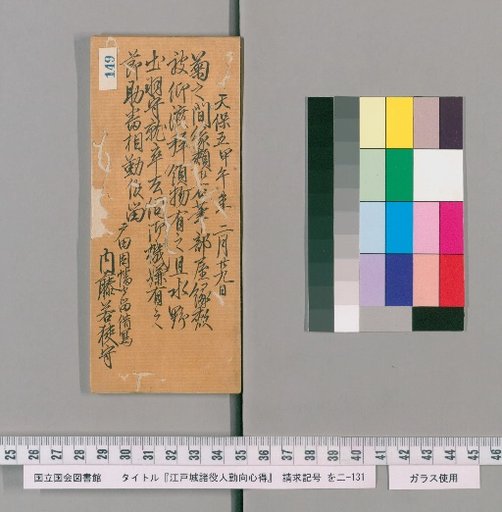 149
天保五甲午年 二月廿八日
菊之間縁頬
部屋
被仰渡 有之且水野
出羽守 卒去 有之
節助番相勤候留
戸田因幡 留借写
内藤若狭守
25 26 27 28 29 30 31 32 33 34 35 36 37 38 39 40 41 42 43 44 45 46
国立国会図書館 タイトル『江戸城諸役人勤向心得』 請求記号 を二-131 ガラス使用